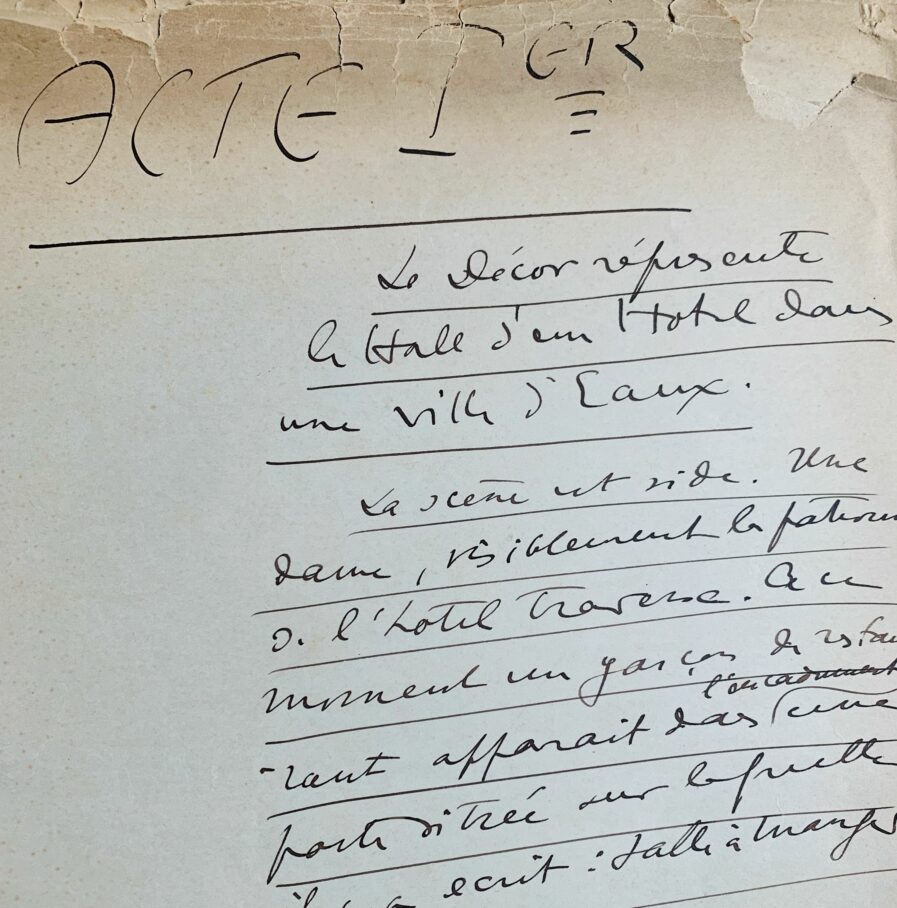 ACTE IER
Le Décor réprésente
le Hall d'un Hotel dans
une ville d'Eaux.
La scène est vide. Une
dame, visiblement la patronne
de l'hotel traverse. A ce
moment un garçon de restau
l'encadrement
-rant apparait dans une
porte vitrée sur laquelle
il y a ecrit : Salle à manger